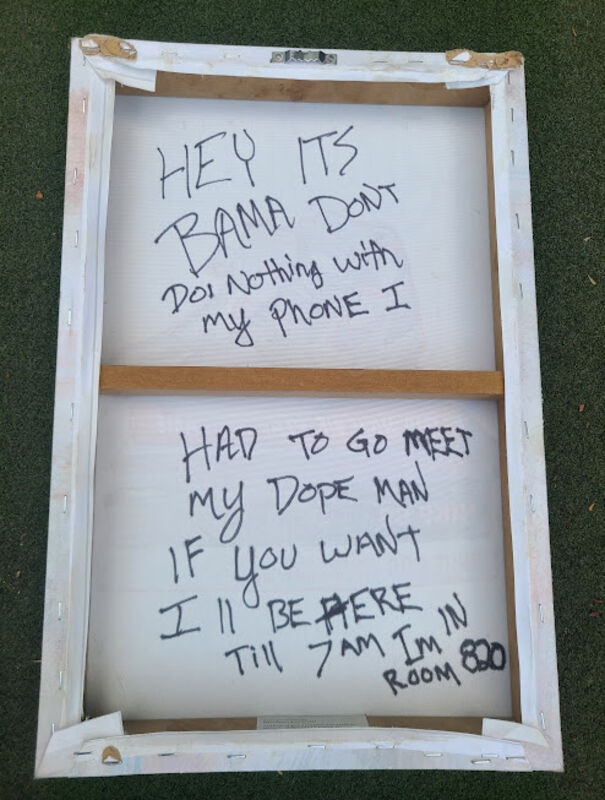 HEY ITS
BAMA DONT
Doi Nothing with
my PHONE I
HAD TO GO MEET
my DOPE MAN
IF you WANT
I ll BE HERE
Till 7 AM Im IN
ROOM 820